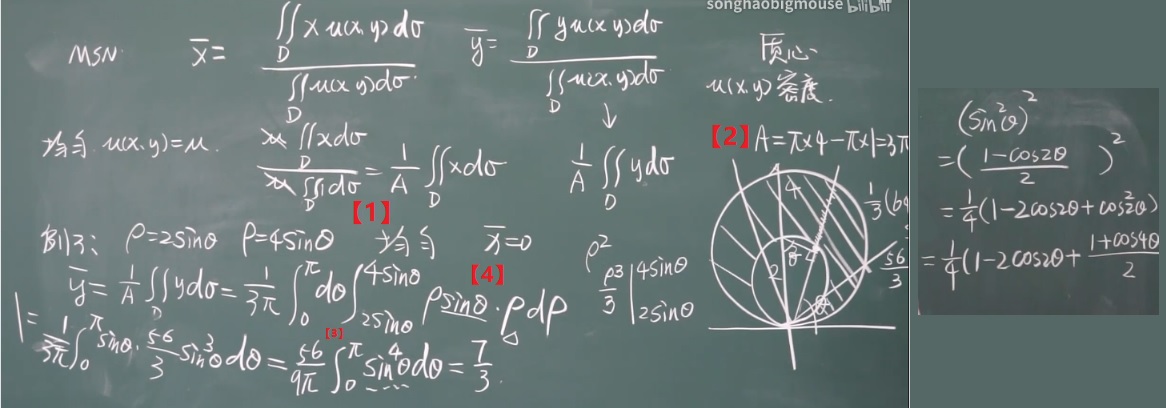 songhaobigmouse bilibili
MSN. x̄ = ∬_D x u(x,y)dσ / ∬_D u(x,y)dσ ȳ = ∬_D y u(x,y)dσ / ∬_D u(x,y)dσ 质心
u(x,y)密度.
均匀. u(x,y)=u. u∬_D xdσ / u∬_D 1dσ = 1/A ∬_D xdσ ↓ 1/A ∬_D ydσ
【1】
【2】A=π×4-π×1=3π
4
2
θ
1/3(64
56/3
例3: ρ=2sinθ ρ=4sinθ 均匀 x̄=0
ȳ = 1/A ∬_D ydσ = 1/3π ∫_0^π dθ ∫_{2sinθ}^{4sinθ} ρsinθ·ρdρ
【4】
ρ²
ρ³/3 |_{2sinθ}^{4sinθ}
= 1/3π ∫_0^π sinθ·56/3 sin³θdθ = 56/9π ∫_0^π sin⁴θdθ = 7/3.
【3】
(sin²θ)²
=(1-cos2θ / 2)²
=1/4(1-2cos2θ+cos²2θ)
=1/4(1-2cos2θ+ 1+cos4θ / 2